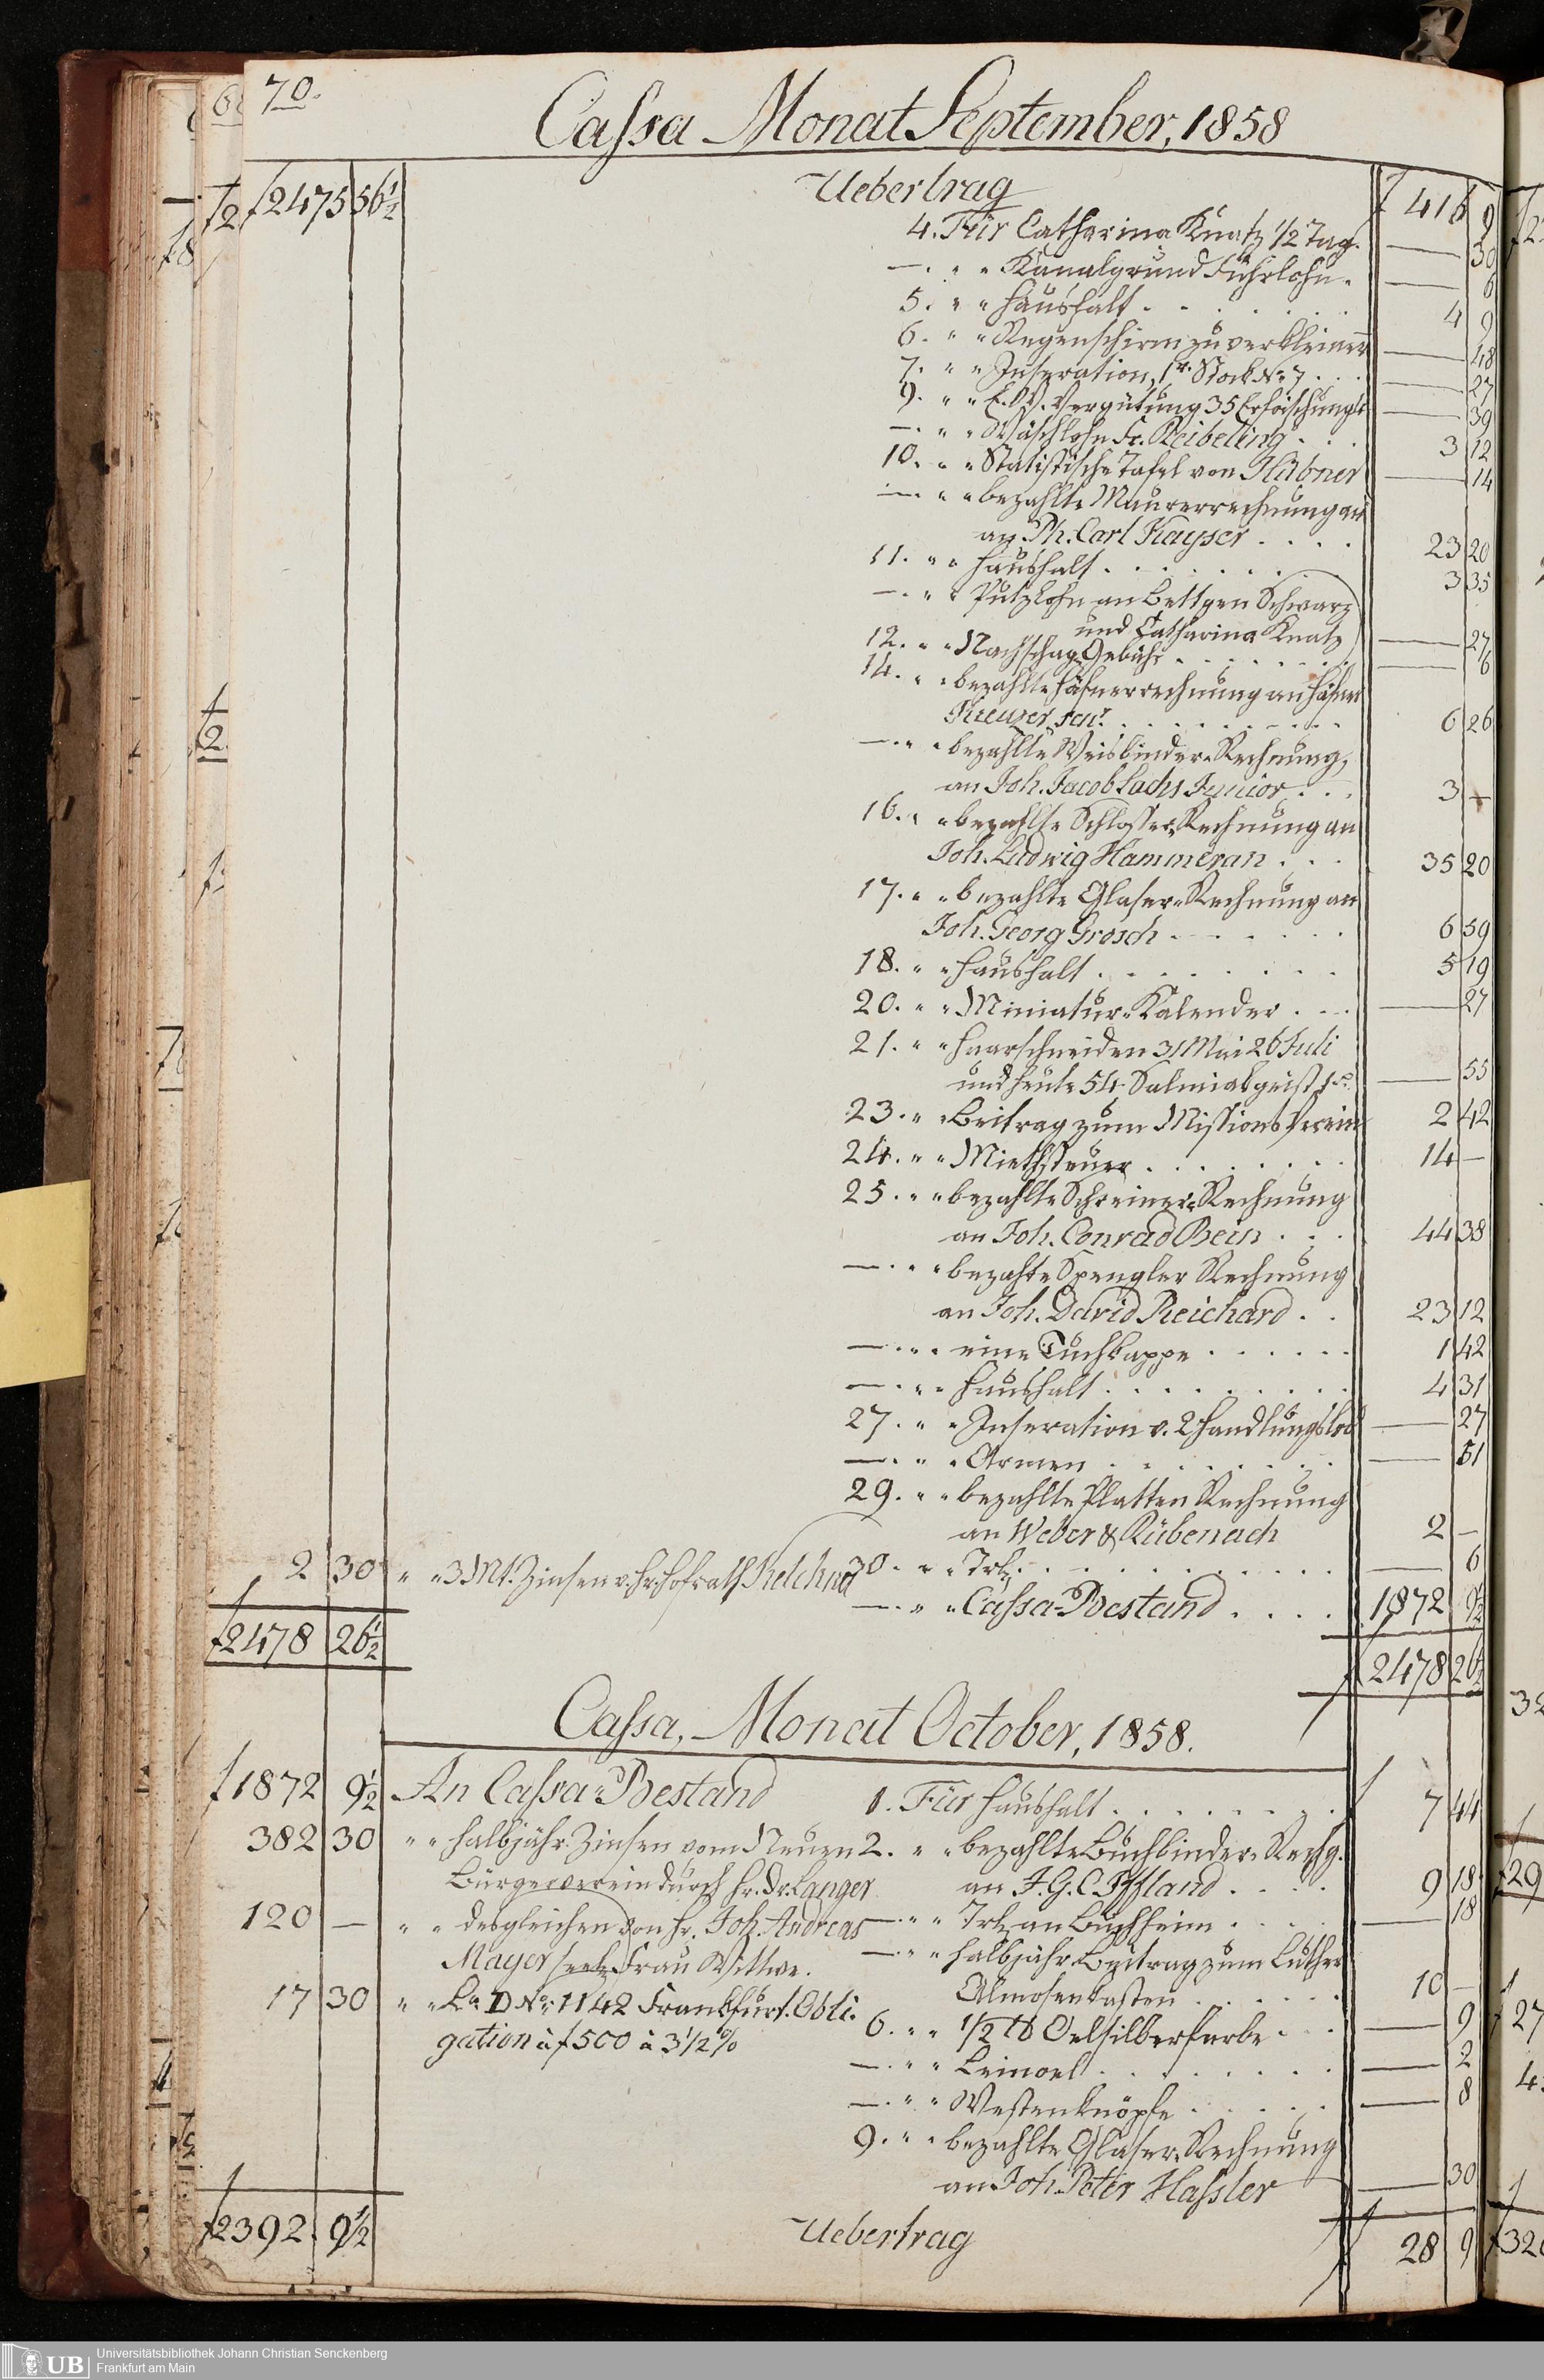 70.
Cassa Monat September, 1858
f 2475 56½
Uebertrag f 416 9
4. Für Catharina Knatz 1/2 Tag. — 30
—. " " Kanalgrund Fuhrlohn. — 6
5. " " Haushalt . . . . 4 9
6. " " Regenschirm zu verkleinern — 48
7. " " Inseration, 1r. Stock No 7 . . . — 27
9. " " E. O. V. Vergütung 35 — 39
—. " " Waschlohn Fr. Reibeling . . . 3 12
10. " " Statistische Tafel von Hübner — 14
—. " " bezahlte Maurerrechnung an
an Ph. Carl Kayser . . . . 23 20
11. " " Haushalt . . . . . . . 3 35
—. " " Putzlohn an Bettgen Schwarz
und Catharina Knatz — 27
12. " " Nachschag Gebühr . . . . . . . — 6
14. " " bezahlte Häfnerrechnung an Häfner
Kreuzer senr. . . . . . . . . 6 26
—. " " bezahlte Weisbinder-Rechnung,
an Joh. Jacob Lachs Junior . . . 3 —
16. " " bezahlte Schlosser Rechnung an
Joh. Ludwig Hammeran . . . 35 20
17. " " bezahlte Glaser-Rechnung an
Joh. Georg Grosch . . . . . . 6 59
18. " " Haushalt . . . . . . . . 5 19
20. " " Miniatur-Kalender . . . — 27
21. " " Haarschneiden 31 Mai 26 Juli
und heute 54 Salmiakgeist 1 — 55
23. " " Beitrag zum Missions Verein 2 42
24. " " Miethsteuer . . . . . . . 14 —
25. " " bezahlte Schreiner Rechnung
an Joh. Conrad Bein . . . 44 38
—. " " bezahte Spengler Rechnung
an Joh. David Reichard . . 23 12
—. " " eine Tuchkappe . . . . . . 1 42
—. " " Haushalt . . . . . . . . . 4 31
27. " " Inseration v. 2 — 27
—. " " Armen . . . . . . . . — 51
29. " " bezahlte Platten Rechnung
an Weber & Rübenach 2 —
2 30 " " 3 Mt. Zinsen v. Hr. Hofrath Kelchner 30. " " Trkz. . . . . . . . . . . — 6
—. " " Cassa-Bestand . . . . 1872 9½
f 2478 26½
f 2478 26½
Cassa, Monat October, 1858.
f 1872 9½ An Cassa-Bestand 1. Für Haushalt . . . . . . . . f 7 44
382 30 " " halbjähr. Zinsen vom Neuen 2. " " bezahlte Buchbinder-Rechg.
Bürgerverein durch Hr. Dr. Langer an J. G. C. Iffland . . . . 9 18
120 — " " desgleichen von Hr. Joh. Andreas —. " " Trkz an Buchheim . . . . — 18
Mayer seel. Frau Wittwe. —. " " halbjähr. Beitrag zum Luther
17 30 " " La. D No. 1142 Frankfurt. Obli- Almosenkasten . . . . . . 10 —
gation à f 500 à 3 1/2 % 6. " " 1/2 ℔ Oelsilberfarbe . . . — 9
—. " " Leinoel . . . . . . . . — 2
—. " " Westenknöpfe . . . . . — 8
9. " " bezahlte Glaser Rechnung
an Joh. Peter Hassler — 30
f 2392 9½ Uebertrag f 28 9
UB Universitätsbibliothek Johann Christian Senckenberg
Frankfurt am Main